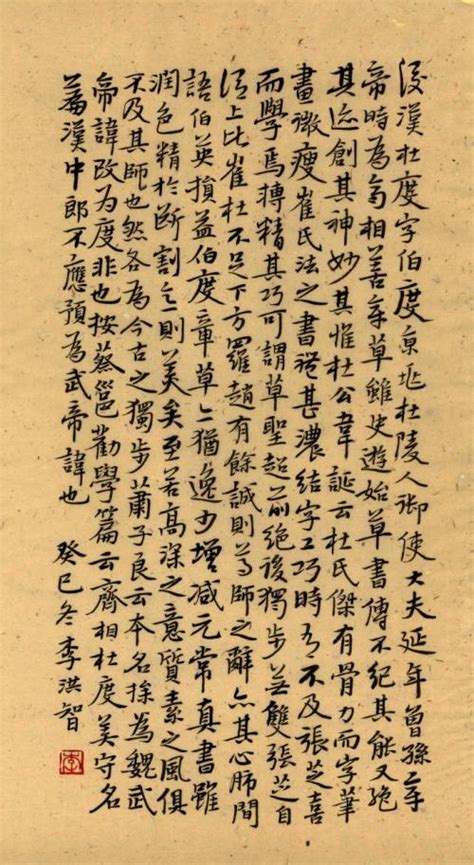 後漢杜度字伯度京兆杜陵人御使大夫延年曾孫章
帝時為齊相善章草雖史遊始草書傳不紀其能又絕
其迹創其神妙其惟杜公韋誕云杜氏傑有骨力而字筆
畫微瘦崔氏法之書體甚濃結字工巧時有不及張芝喜
而學焉摶精其巧可謂草聖超前絕後獨步無雙張芝自
謂上比崔杜不足下方羅趙有餘誠則尊師之辭亦其心肺間
語伯英損益伯度章草亦猶逸少增減元常真書雖
潤色精於斷割意則美矣至若高深之意質素之風俱
不及其師也然各為今古之獨步蕭子良云本名操為魏武
帝諱改为度非也按蔡邕勸學篇云齊相杜度美守名
篇漢中郎不應預為武帝諱也 癸巳冬李洪智
李